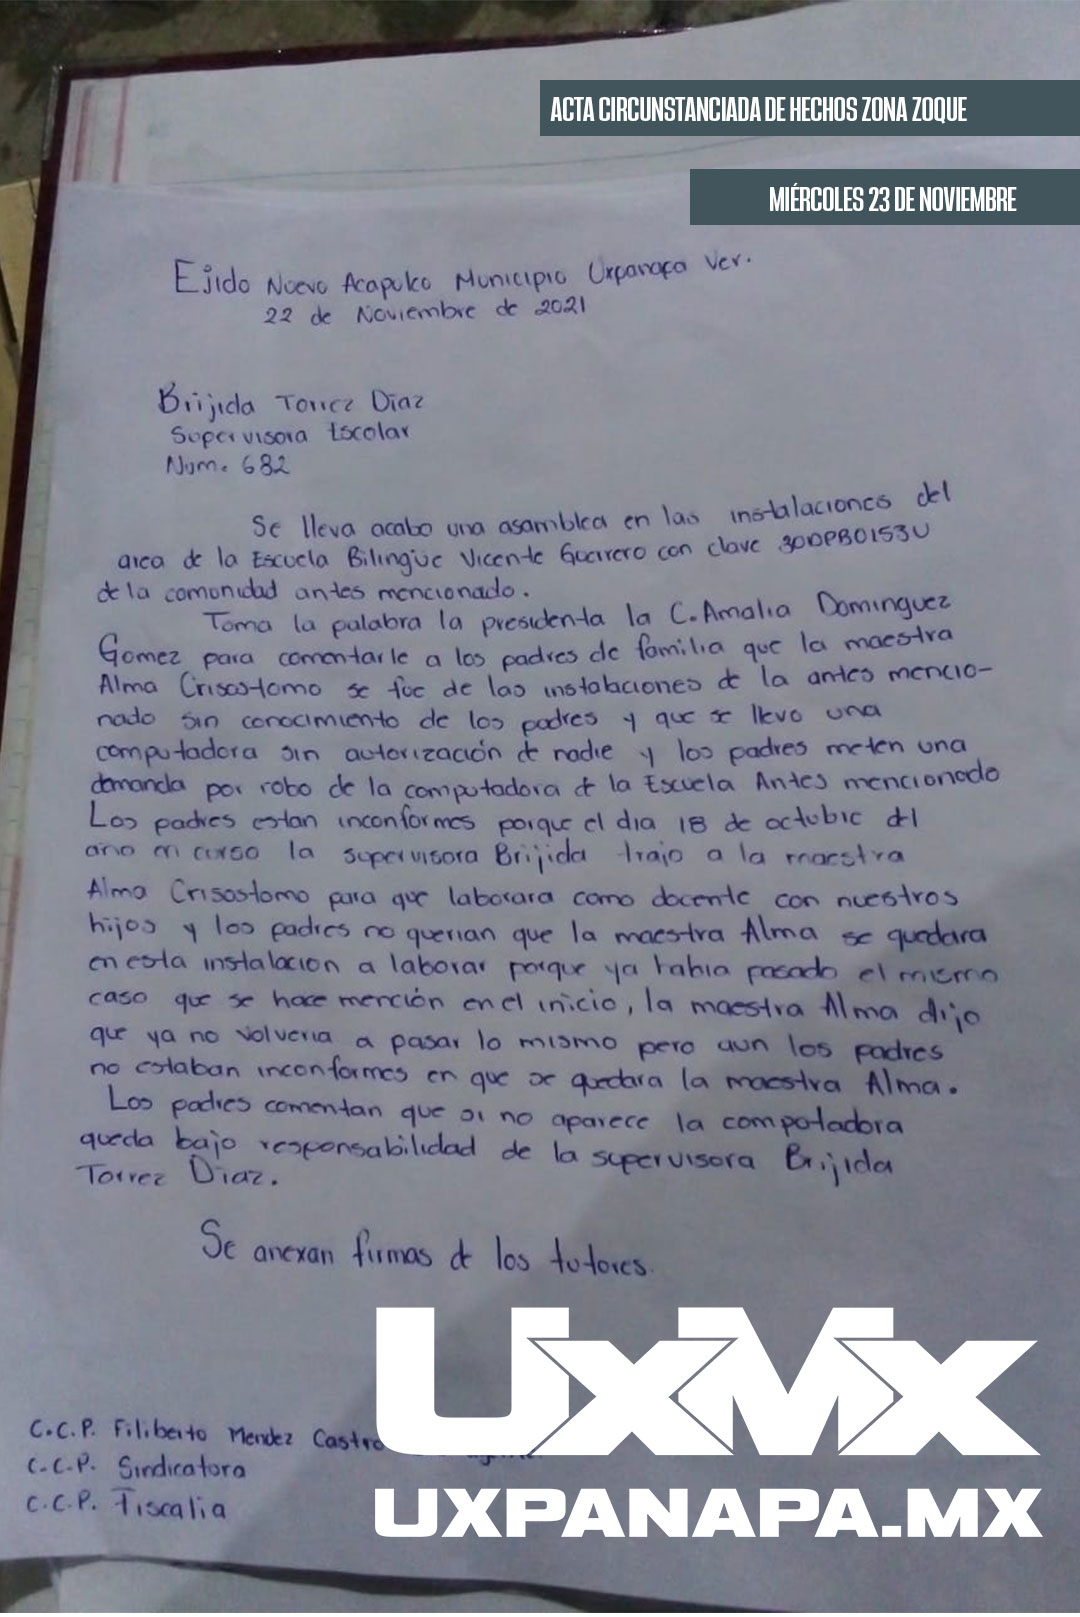 ACTA CIRCUNSTANCIADA DE HECHOS ZONA ZOQUE
MIÉRCOLES 23 DE NOVIEMBRE
Ejido Nuevo Acapulco Municipio Uxpanapa Ver.
22 de Noviembre de 2021
Brijida Torrez Diaz
Supervisora Escolar
Num. 682
Se lleva acabo una asamblea en las instalaciones del
area de la Escuela Bilingüe Vicente Guerrero con clave 30DPB0153U
de la comunidad antes mencionado.
Toma la palabra la presidenta la C. Amalia Dominguez
Gomez para comentarle a los padres de familia que la maestra
Alma Crisostomo se fue de las instalaciones de la antes mencio-
nado sin conocimiento de los padres y que se llevo una
computadora sin autorización de nadie y los padres meten una
demanda por robo de la computadora de la Escuela Antes mencionado
Los padres estan inconformes porque el dia 18 de octubre del
año en curso la supervisora Brijida trajo a la maestra
Alma Crisostomo para que laborara como docente con nuestros
hijos y los padres no querian que la maestra Alma se quedara
en esta instalacion a laborar porque ya habia pasado el mismo
caso que se hace mención en el inicio, la maestra Alma dijo
que ya no volveria a pasar lo mismo pero aun los padres
no estaban inconformes en que se quedara la maestra Alma.
Los padres comentan que si no aparece la computadora
queda bajo responsabilidad de la supervisora Brijida
Torrez Diaz.
Se anexan firmas de los tutores.
C.C.P. Filiberto Mendez Castro
C.C.P. Sindicatora
C.C.P. Fiscalia
UxMx
UXPANAPA.MX